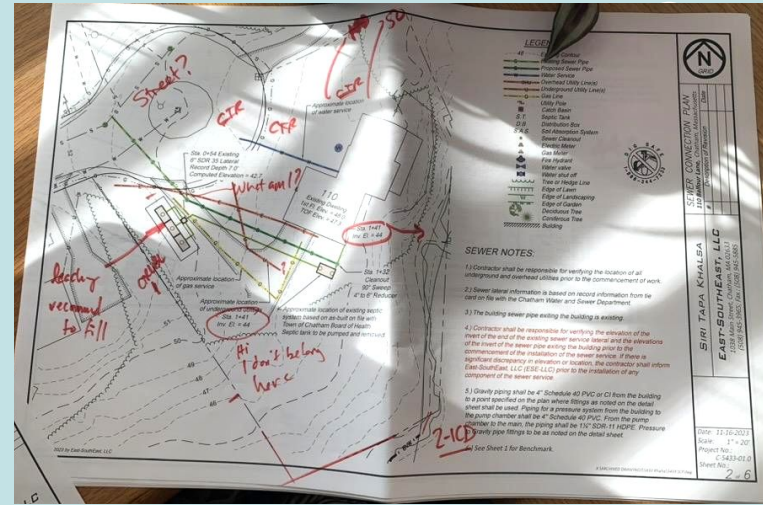 Street?
CTR
CTR
CTR
50
Approximate location
of water service
Sta. 0+54 Existing
6" SDR 35 Lateral
Record Depth 7.0'
Computed Elevation = 42.7
What am I?
110
Existing Dwelling
Sta. 1+41
Inv. El. = 44
Sta. 1+32
Cleanout
90° Sweep
4" to 6" Reducer
Approximate location
of gas service
Approximate location
of underground
Sta. 1+41
Inv. El. = 44
Approximate location of existing septic
system based on as-built on file with
Town of Chatham Board of Health
Septic tank to be pumped and removed
leaching
recommend
to fill
Hi
I don't belong
here
51
50
49
48
2-1CD
2023 by East-SouthEast, LLC
LEGEND
Existing Sewer Pipe
Proposed Sewer Pipe
Water Service
Overhead Utility Line(s)
Underground Utility Line(s)
Gas Line
Utility Pole
Catch Basin
S.T. Septic Tank
D.B. Distribution Box
S.A.S. Soil Absorption System
Sewer Cleanout
Electric Meter
Gas Meter
Fire Hydrant
Water valve
Water shut off
Tree or Hedge Line
Edge of Lawn
Edge of Landscaping
Edge of Garden
Deciduous Tree
Coniferous Tree
Building
SEWER NOTES:
1.) Contractor shall be responsible for verifying the location of all
underground and overhead utilities prior to the commencement of work.
2.) Sewer lateral information is based on record information from tie
card on file with the Chatham Water and Sewer Department.
3.) The building sewer pipe exiting the building is existing.
4.) Contractor shall be responsible for verifying the elevation of the
invert of the end of the existing sewer service lateral and the elevations
of the invert of the sewer pipe exiting the building prior to the
commencement of the installation of the sewer service. If there is
significant discrepancy in elevation or location, the contractor shall inform
East-SouthEast, LLC (ESE-LLC) prior to the installation of any
component of the sewer service.
5.) Gravity piping shall be 4" Schedule 40 PVC or CI from the building
to a point specified on the plan where fittings as noted on the detail
sheet shall be used. Piping for a pressure system from the building to
the pump chamber shall be 4" Schedule 40 PVC. From the pump
chamber to the main, the piping shall be 1½" SDR-11 HDPE. Pressure
gravity pipe fittings to be as noted on the detail sheet.
See Sheet 1 for Benchmark.
N
GRID
DIG SAFE
SEWER CONNECTION PLAN
Chatham, Massachusetts
Description of Revision
Date
SIRI TAPA KHALSA
EAST-SOUTHEAST, LLC
1038 Main Street, Chatham, MA 02633
Date: 11-16-2023
Scale: 1" = 20'
Project No.:
C-5433-01.0
Sheet No.:
2 of 6
LC